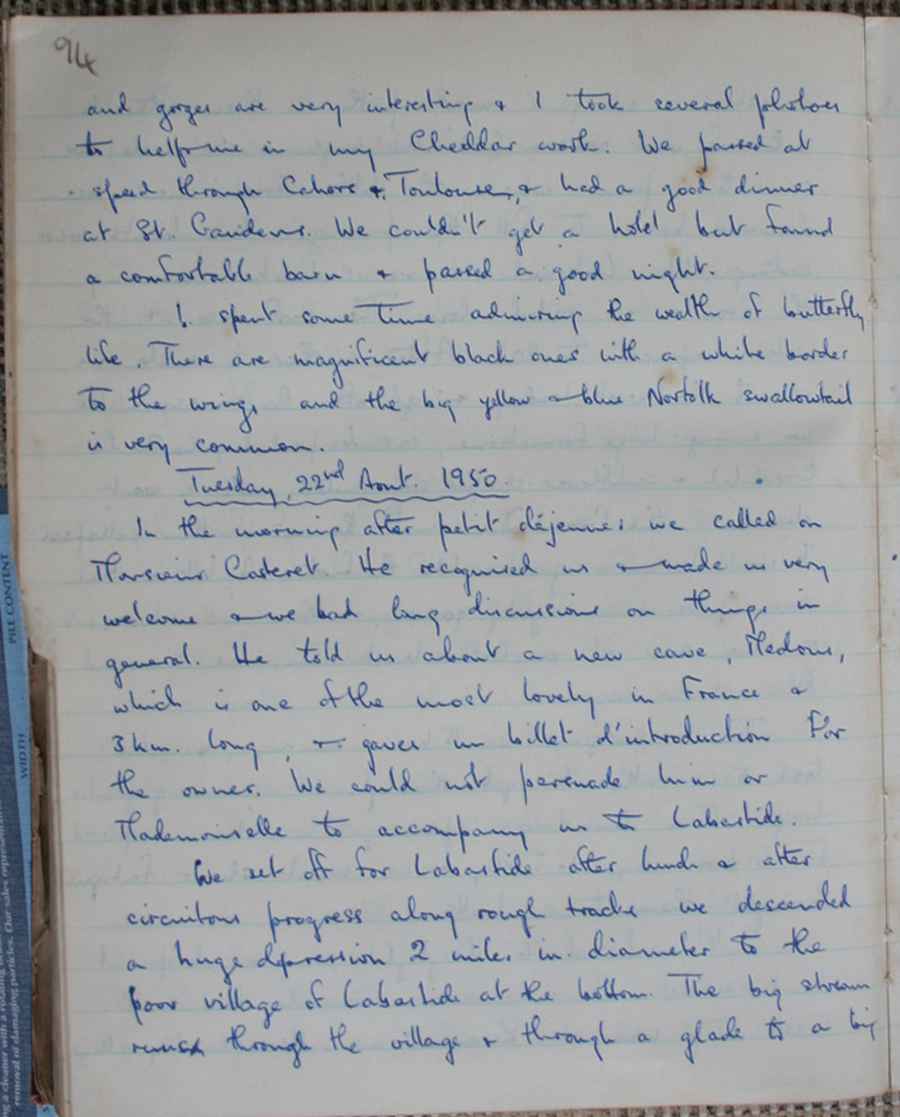 94
and gorges are very interesting & I took several photoes
to help me in my Cheddar work. We passed at
speed through Cahors & Toulouse, & had a good dinner
at St. Gaudens. We couldn't get a hotel but found
a comfortable barn & passed a good night.
I spent some time admiring the wealth of butterfly
life. There are magnificent black ones with a white border
to the wings and the big yellow & blue Norfolk swallowtail
is very common.
Tuesday, 22nd Aout. 1950
In the morning after petit déjeuner we called on
Monsieur Casteret. He recognised us & made us very
welcome & we had long discussions on things in
general. He told us about a new cave,
which is one of the most lovely in France &
3 km. long, & gave us un billet d'introduction for
the owner. We could not persuade him or
Mademoiselle to accompany us to Labastide.
We set off for Labastide after lunch & after
circuitous progress along rough tracks we descended
a huge depression 2 miles in diameter to the
poor village of Labastide at the bottom. The big stream
runs through the village & through a glade to a big
PILE CONTENT
WIDTH
removal of damaging particles. Our sales